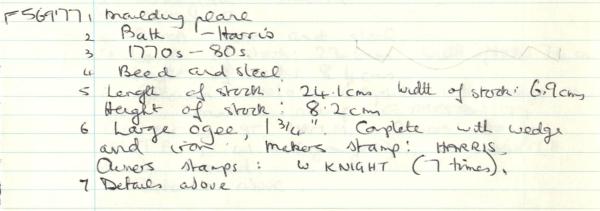 F569177 1 moulding plane
2 Bath - Harris
3 1770s - 80s
4 Beed and steel
5 Length of stock: 24.1cms Width of stock: 6.9cms
Height of stock: 8.2cms
6 Large ogee, 1 3/4". Complete with wedge
and iron. Makers stamp: HARRIS.
Owners stamps: W KNIGHT (7 times).
7 Details above